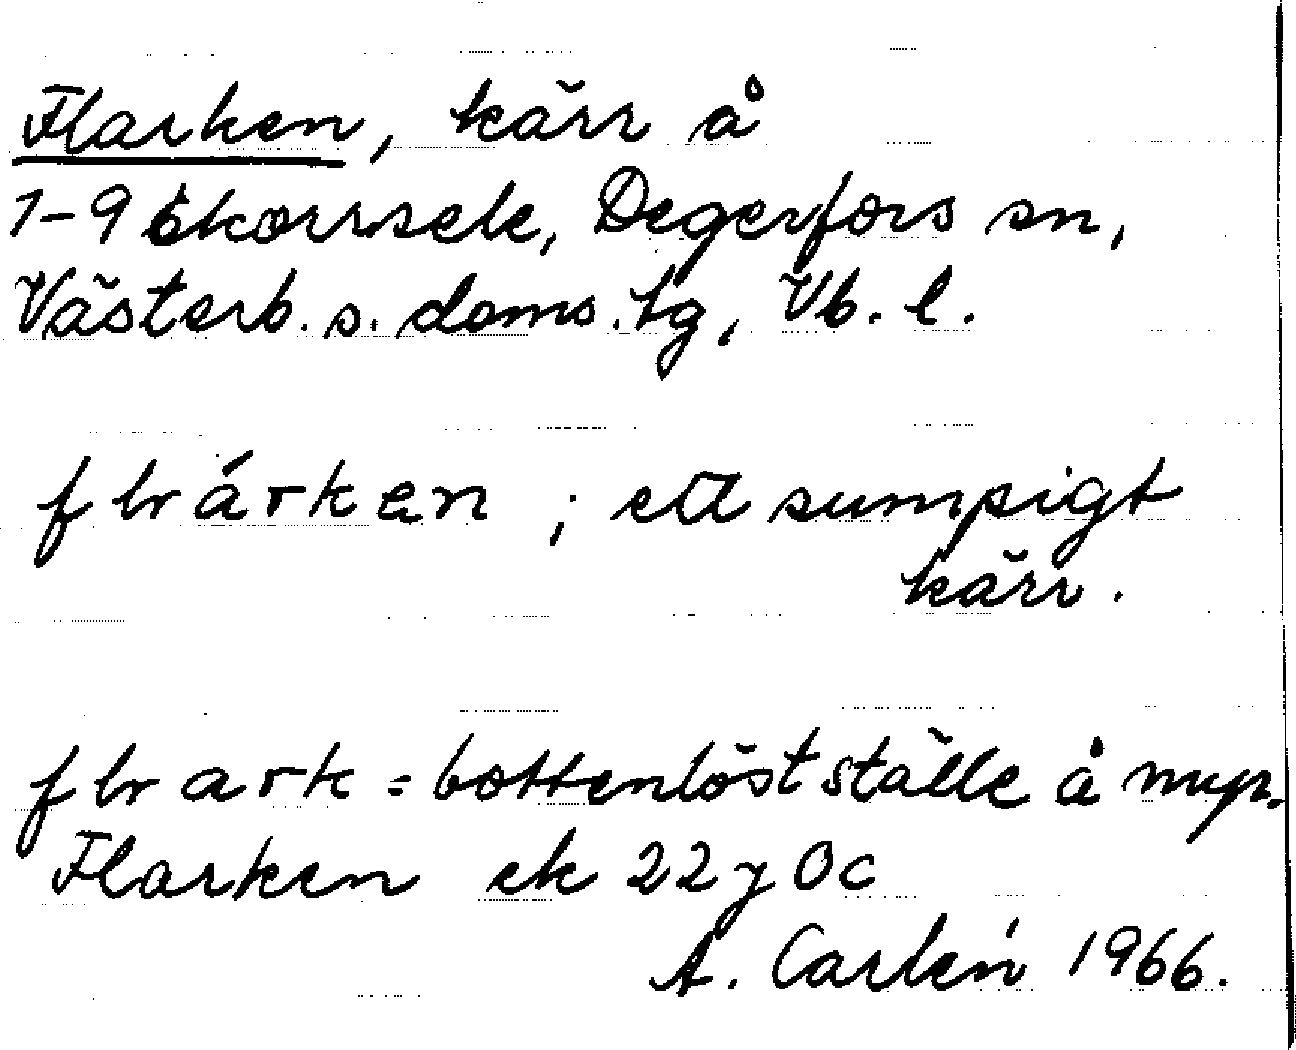 Flarken, kärr å
1-9 Ekorrsele, Degerfors sn,
Västerb. s. doms. tg, Vb. l.
flvárken ; ett sumpigt
kärr.
flvark = bottenlöst ställe å myr.
Flarken ek 22 y 0c
A. Carlén 1966.